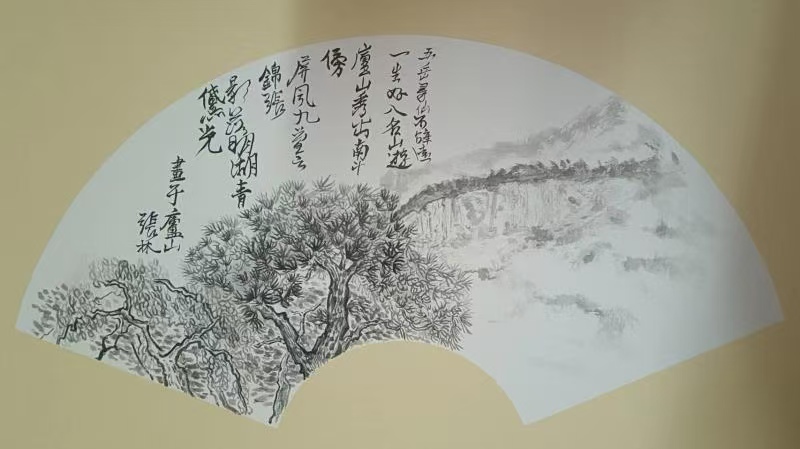 五岳寻仙不辞遠
一生好入名山遊
廬山秀出南斗
傍
屏風九叠雲
錦張
影落明湖青
黛光
畫于廬山
張林